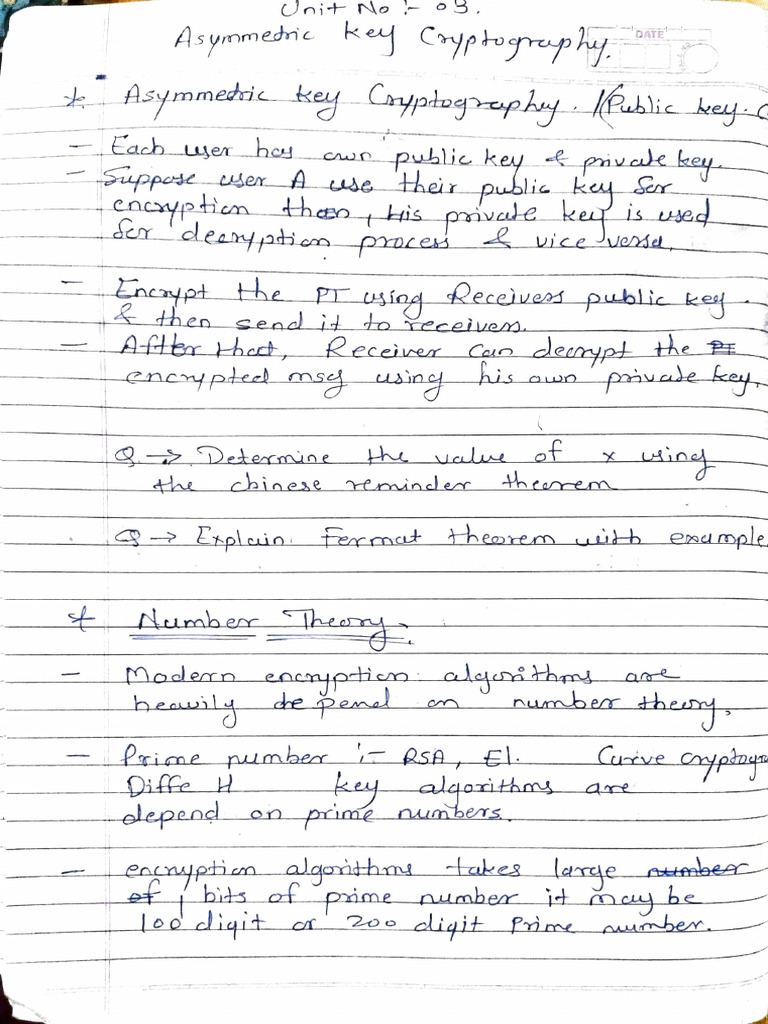 Unit No :- 03.
Asymmetric Key Cryptography.
DATE
* Asymmetric key Cryptography. /(Public key. C
- Each user has own public key & private key.
- Suppose user A use their public key for
encryption then, his private key is used
for decryption process & vice versa.
- Encrypt the PT using Receivers public key.
& then send it to receivers.
- After that, Receiver can decrypt the PT
encrypted msg using his own private key.
Q → Determine the value of x using
the chinese reminder theorem
Q → Explain. Fermat theorem with example
* Number Theory.
- Modern encryption algorithms are
heavily depend on number theory.
- Prime number :- RSA, El. Curve cryptogra
Diffe H key algorithms are
depend on prime numbers.
- encryption algorithms takes large number
of bits of prime number it may be
100 digit or 200 digit Prime number.